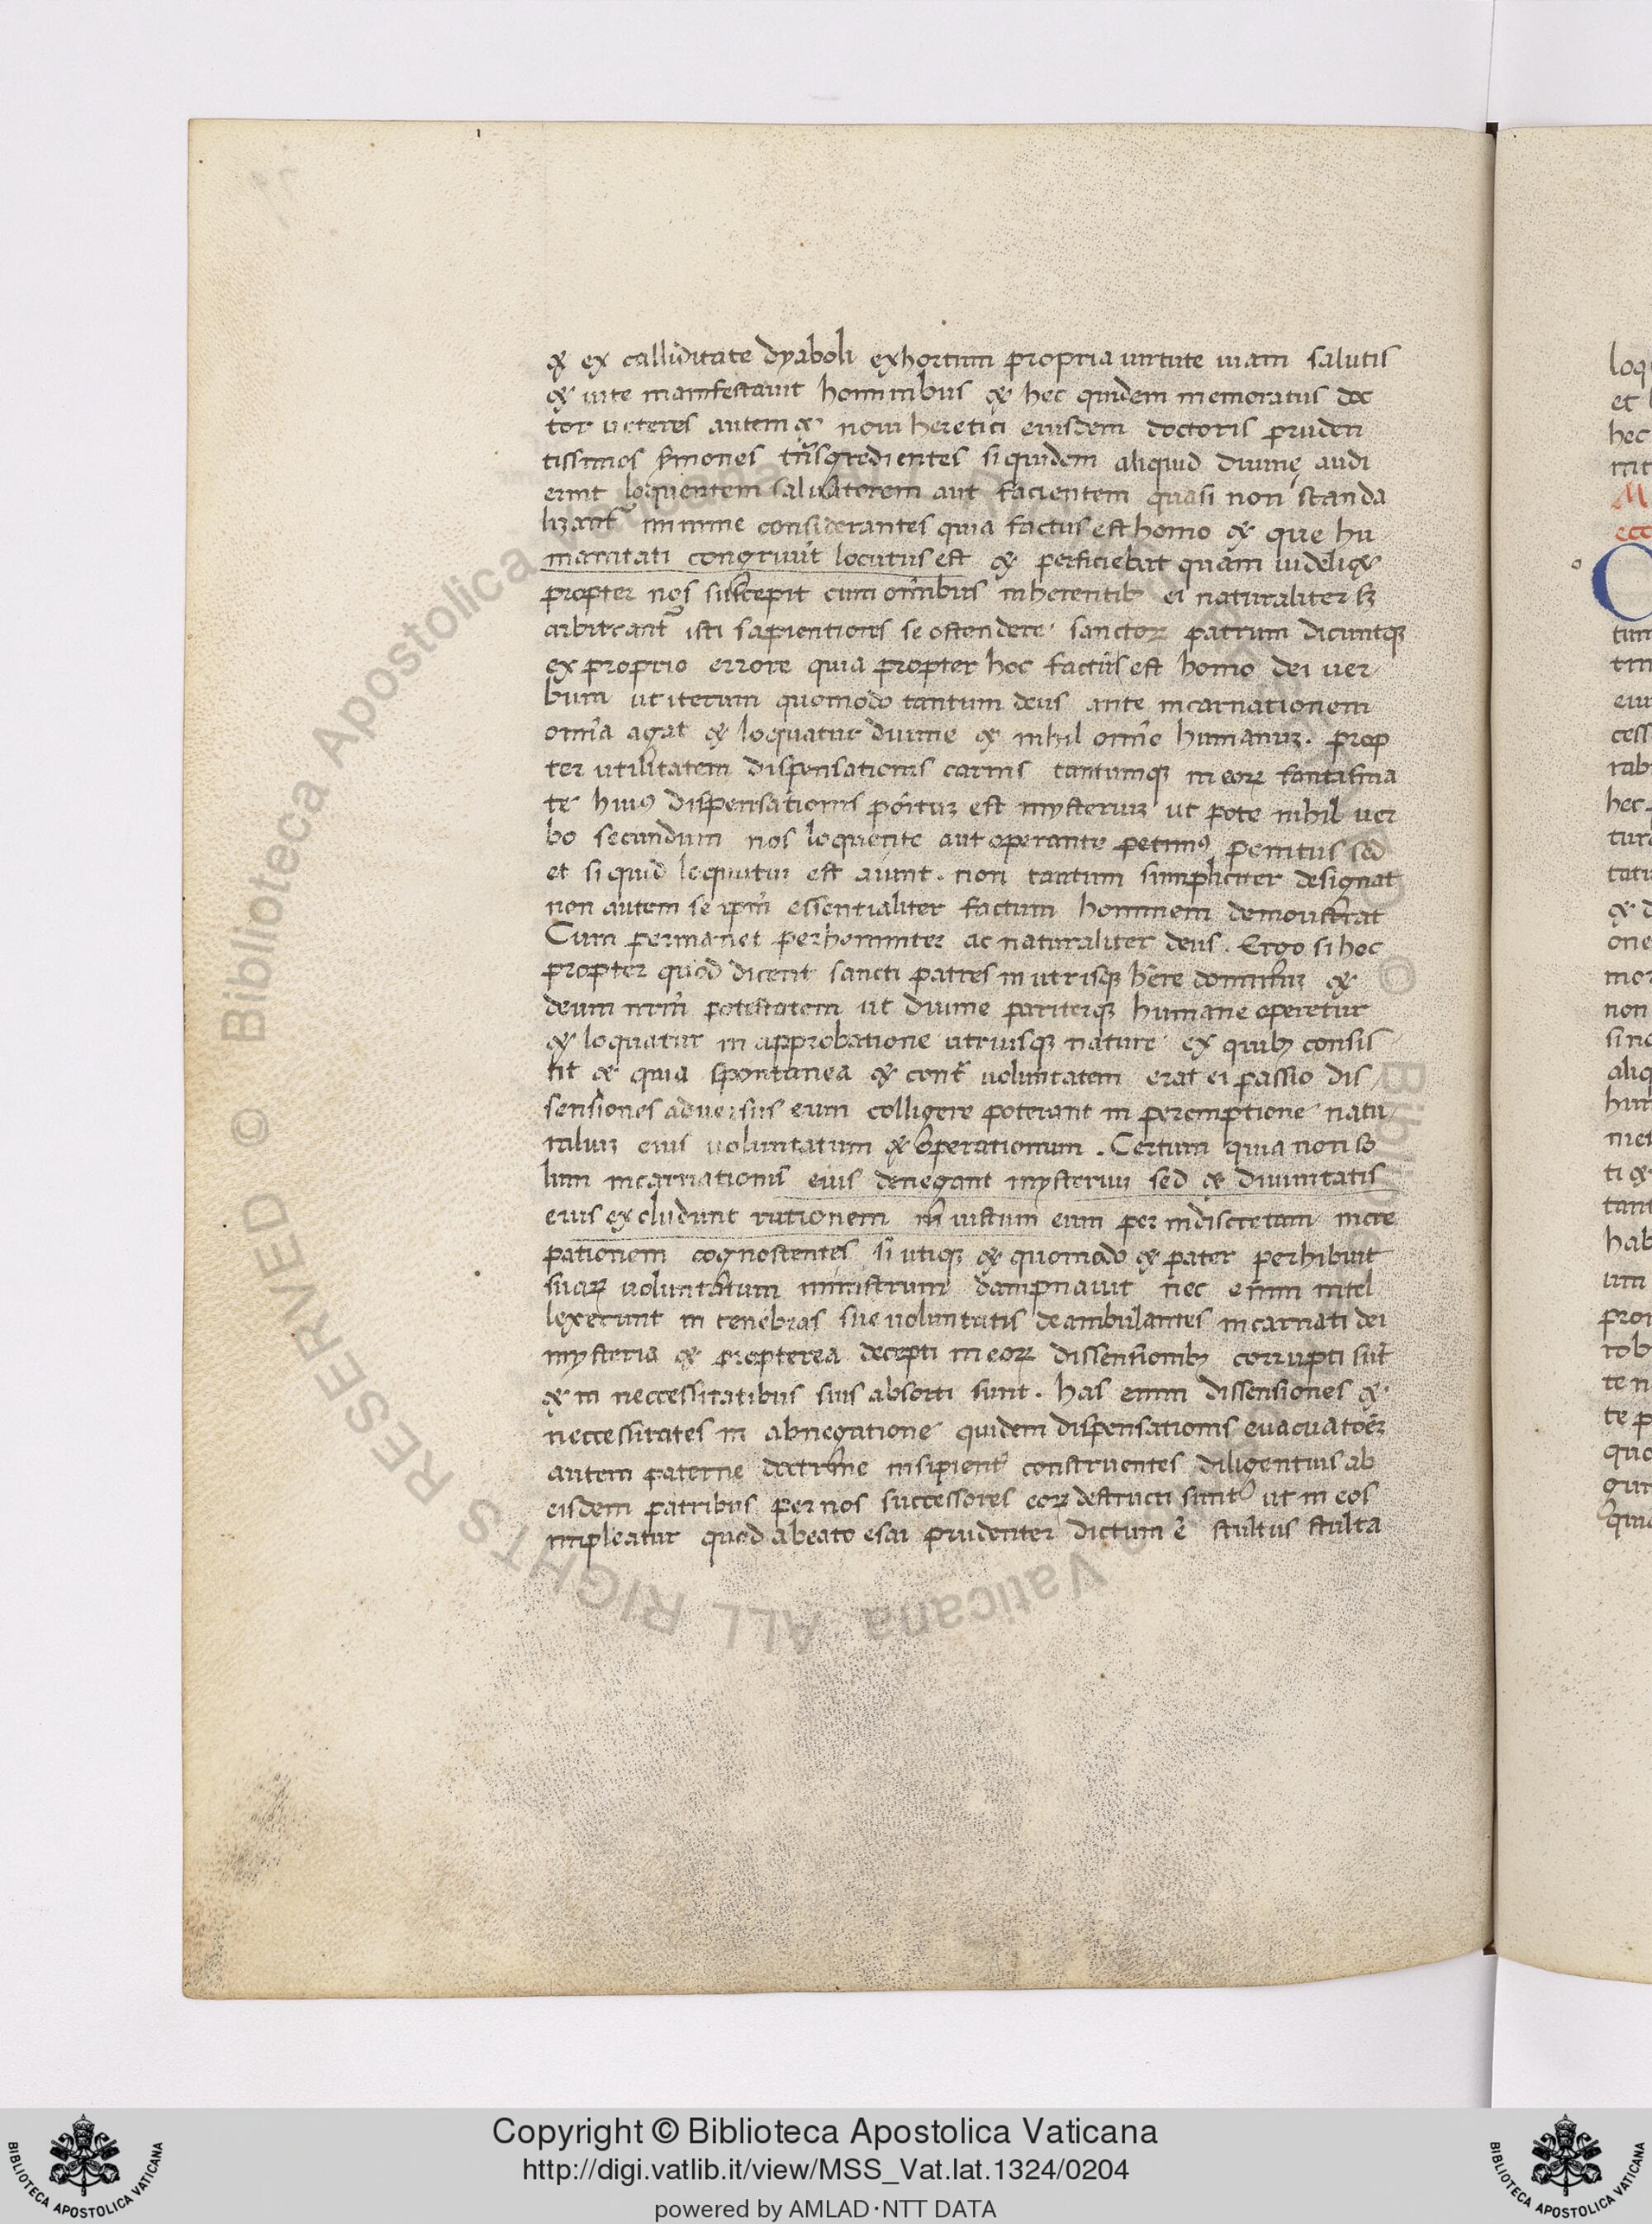 & ex calliditate dyaboli exhortum propria uirtute uiam salutis
& uite manifestauit hominibus & hec quidem memoratus doc
tor ueteres autem & noui heretici eiusdem doctoris pruden
tissimos sermones trãsgredientes siquidem aliquid diuine audi
erint loquentem saluatorem aut facientem quasi non scanda
lizant̃ minime considerantes quia factus est homo & que hu
manitati congruũt locutus est & perficiebat quam
propter nos suscepit cum oĩnibus inherentibꝫ ei naturaliter sꝫ
arbitrant̃ isti sapientiores se ostendere sanctoꝝ patrum dicuntqꝫ
ex proprio errore quia propter hoc factus est homo dei uer
bum ut iterum quomodo tantum deus ante incarnationem
omĩa agat & loquatur diuine & nihil omĩo humanuꝫ. prop
ter utilitatem dispensationis carnis tantumqꝫ in eoꝝ fantasma
te huiꝰ dispensationis põituꝫ est mysteriuꝫ ut pote nihil uer
bo secundum nos loquente aut operante petimꝰ penitus sed
et siquid lequutus est aiunt. non tantum simpliciter designat
non autem se ipm̃ essentialiter factum hominem demonstrat
Cum permanet perhenniter ac naturaliter deus. Ergo si hoc
propter quod dicent sancti patres in utrisqꝫ hẽre dominuꝫ &
deum nrm̃ potestatem ut diuine pariterqꝫ humane operetur
& loquatur in approbatione utriusqꝫ nature ex quibꝫ consis
tit & quia spontanea & cont̃ uoluntatem erat ei passio dis
sensiones aduersus eum colligere poterant in peremptione natu
raliuꝫ eius uoluntatum & operationum. Certum quia non so
lum incarnationis eius denegant mysteriũ sed & diuinitatis
eius excludunt rationem iniustum eum per indiscretam incre
pationem cognoscentes si utiqꝫ & quomodo & pater perhibuit
suaꝝ uoluntatum ministrum dampnauit nec enim intel
lexerunt in tenebras sue uoluntatis deambulantes incarnati dei
mysteria & propterea decepti in eoꝝ dissensionibꝫ corrupti sũt
& in neccessitatibus suis absorti sunt. has enim dissensiones &
neccessitates in abnegatione quidem dispensationis euacuatõeꝫ
autem paterne doctrine insipient̃ construentes diligentius ab
eisdem patribus per nos successores eoꝝ destructi sunt ut in eos
impleatur quod abeato esai prudenter dictum ẽ stultus stulta
loq
et
hec
M
ecc
C
tum
cess
rab
hec
tura
tatu
& d
one
mor
non
sine
aliq
hum
ti &
tant
hab
um
pro
rob
te n
te p
quo
gur
quia
Copyright © Biblioteca Apostolica Vaticana
http://digi.vatlib.it/view/MSS_Vat.lat.1324/0204
powered by AMLAD·NTT DATA
BIBLIOTECA APOSTOLICA VATICANA
BIBLIOTECA APOSTOLICA VATICANA
© Biblioteca Apostolica Vaticana ALL RIGHTS RESERVED